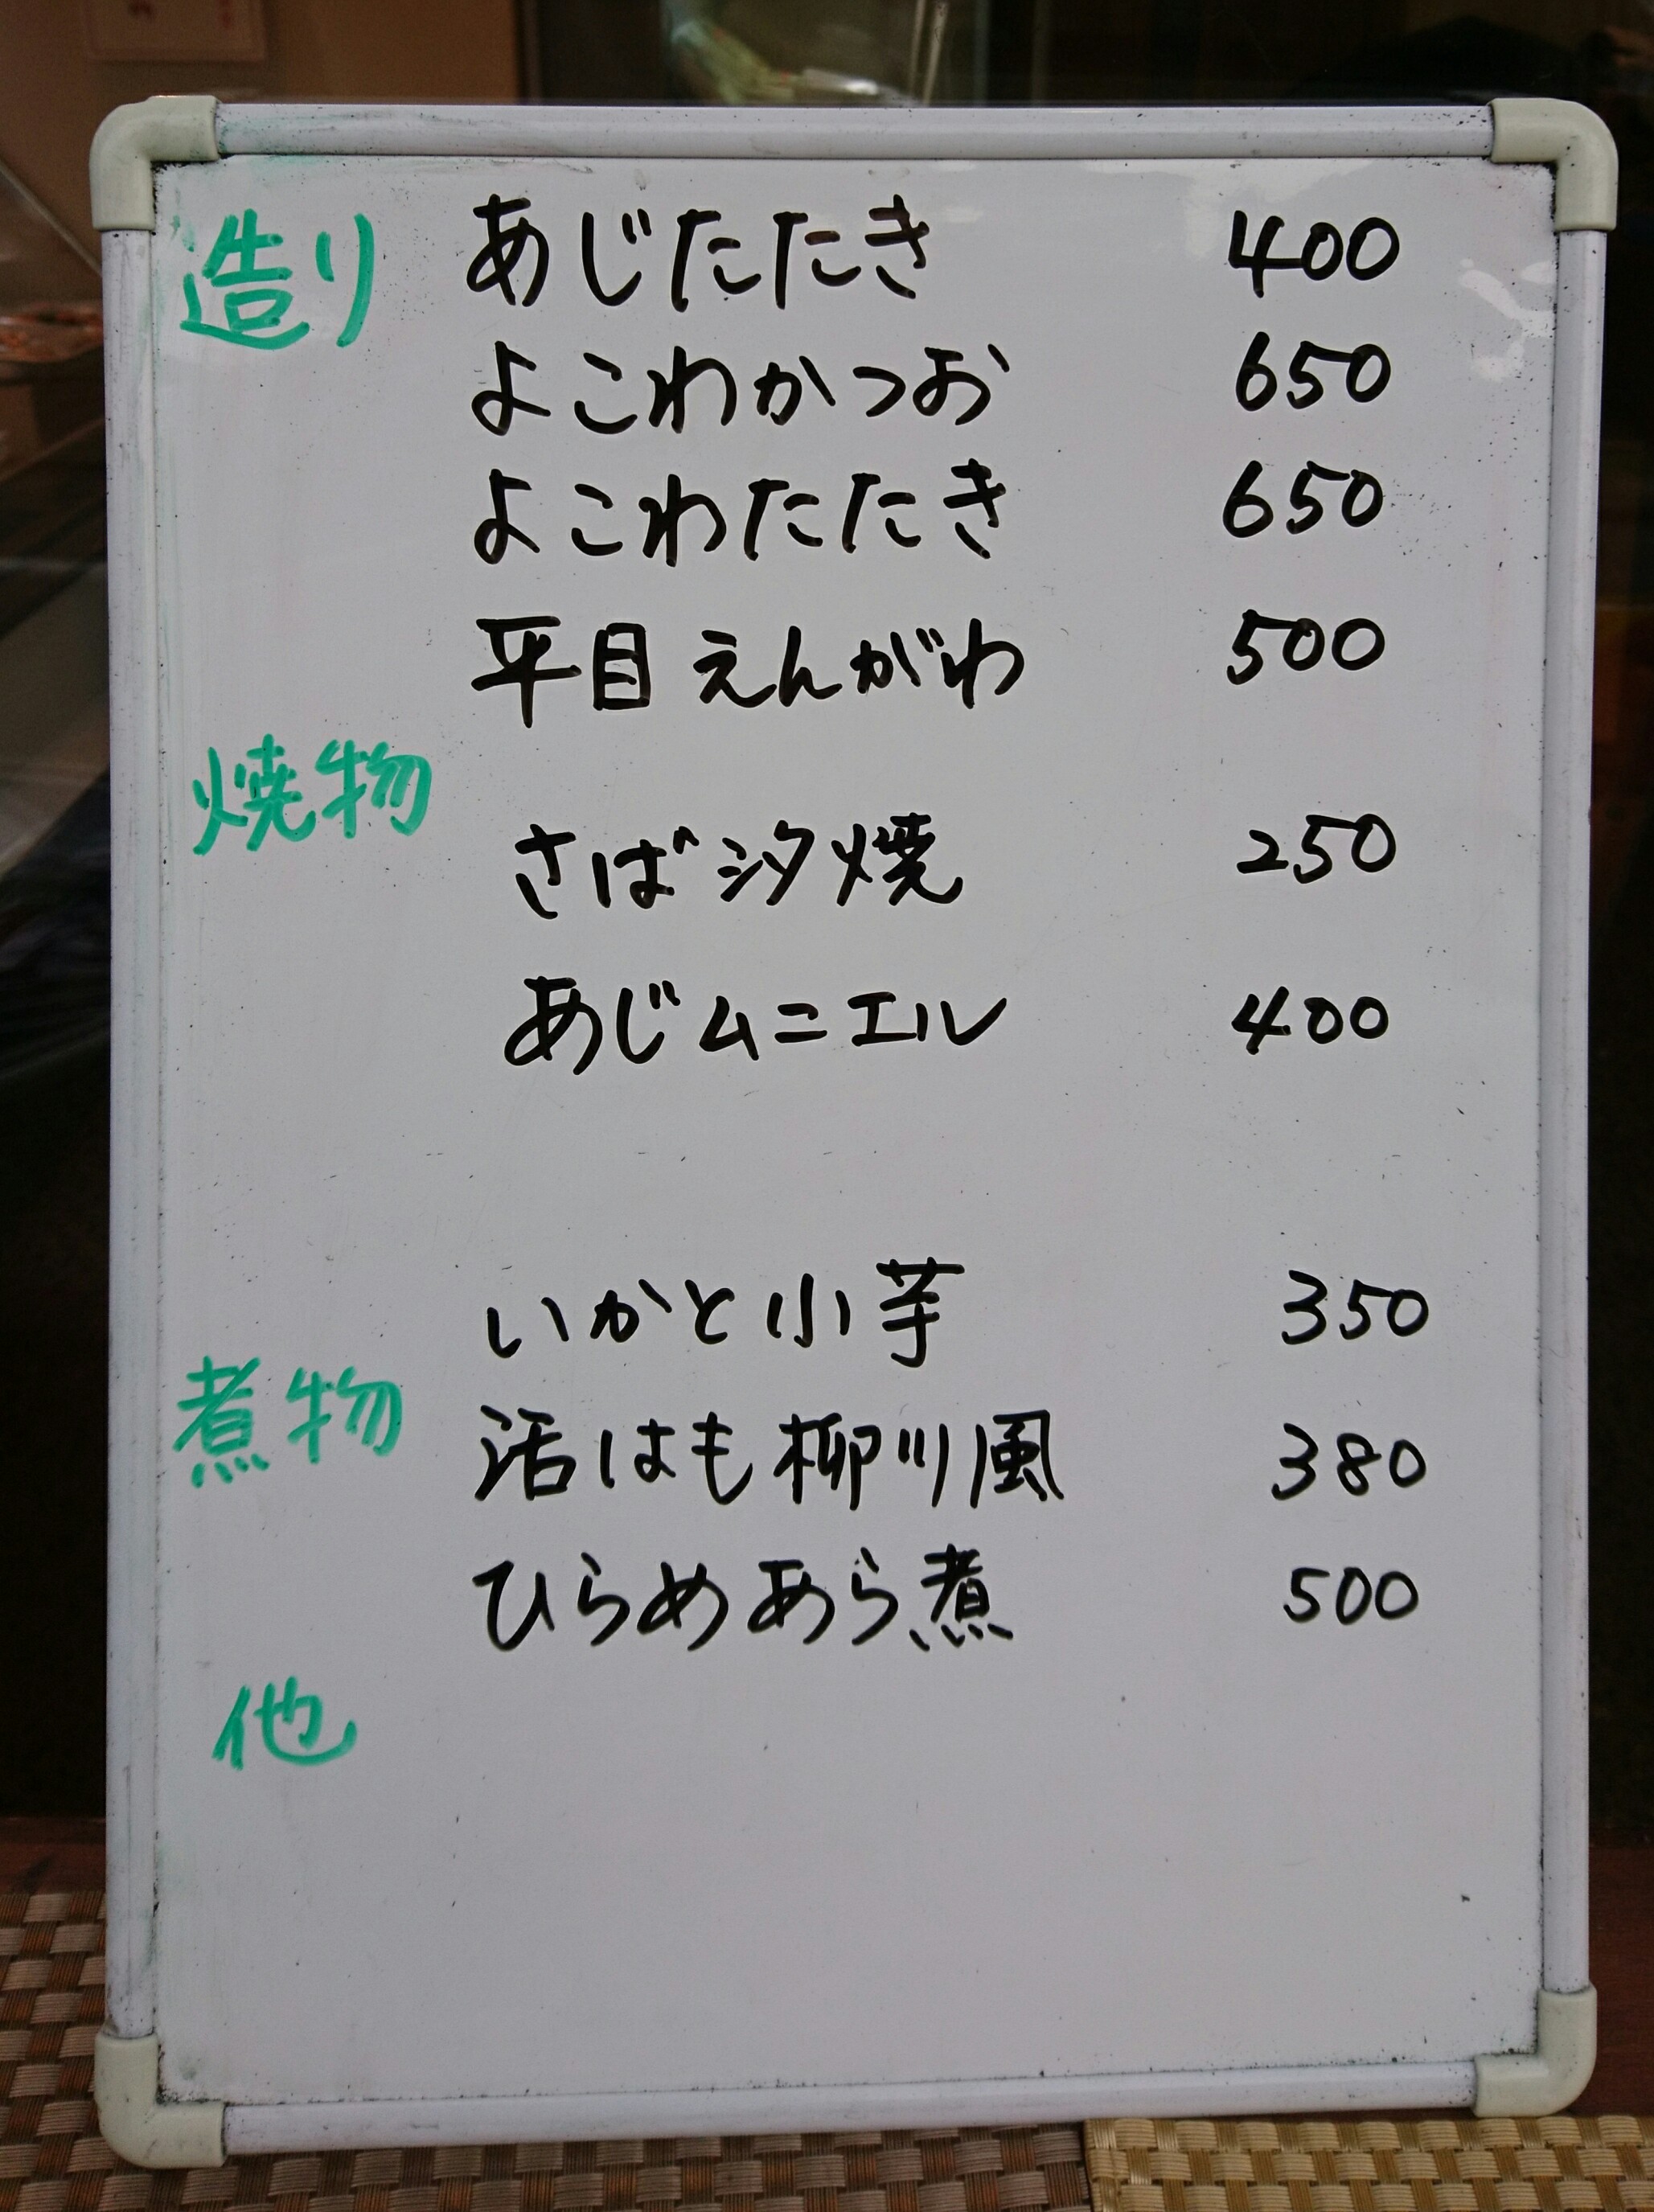 造り あじたたき 400
よこわかつお 650
よこわたたき 650
平目えんがわ 500
焼物
さば汐焼 250
あじムニエル 400
いかと小芋 350
煮物
活はも柳川風 380
ひらめあら煮 500
他